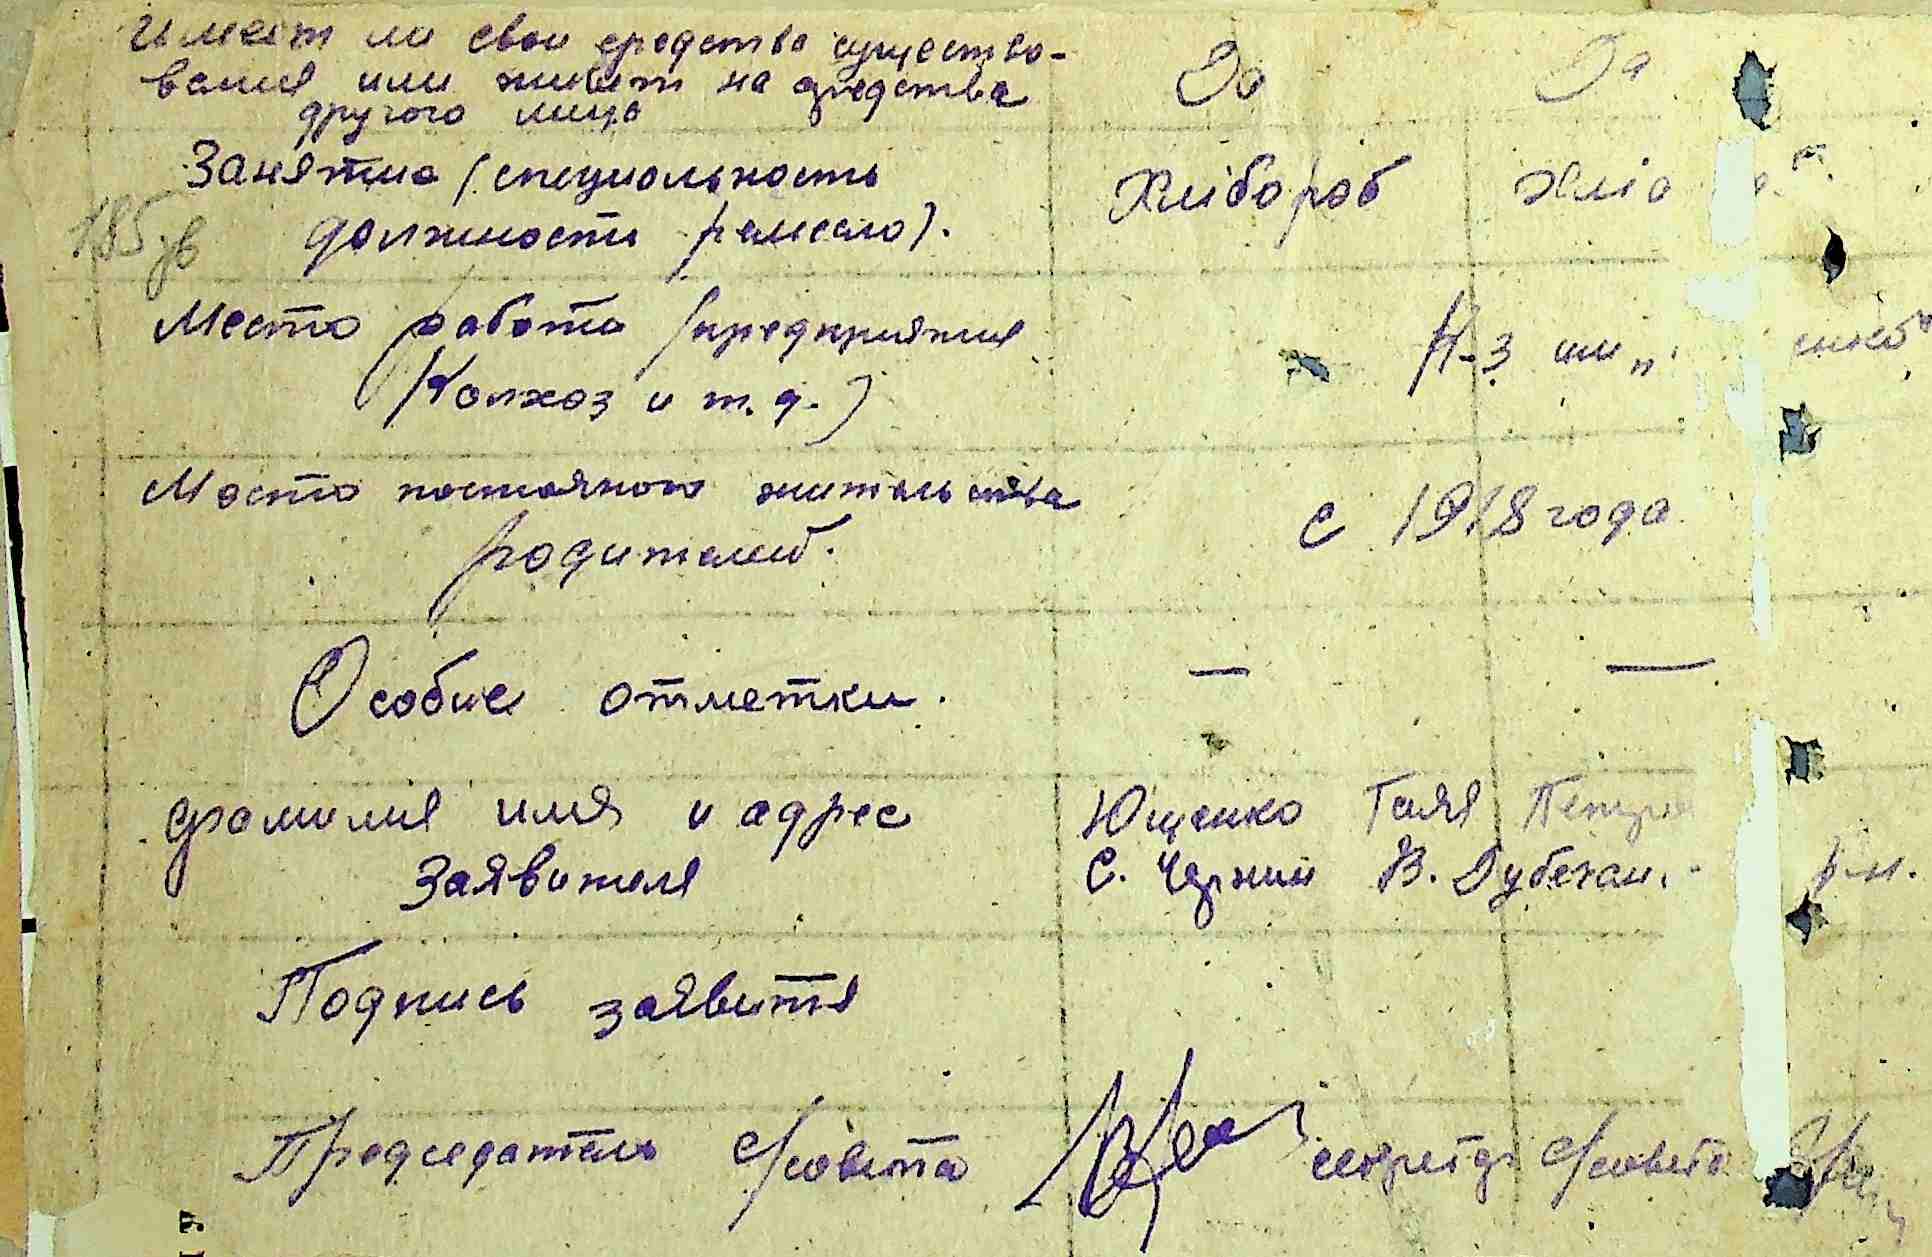 Имеет ли свои средства существо-
вания или живет на средства
другого лица
Да Да
Занятие (специальность
должность ремесло).
Хлібороб Хліб
185 зв
Место работи (предприятия
Колхоз и т.д.)
К-з им
Место постояного жительства
родителей.
с 1918 года
Особие отметки.
— —
Фамилия имя и адрес
заявителя
Ющенко Галя Петро
С. Чержин В. Дубечан. р-н.
Подпись заявитя
Председатель с/совета
секретар с/совета